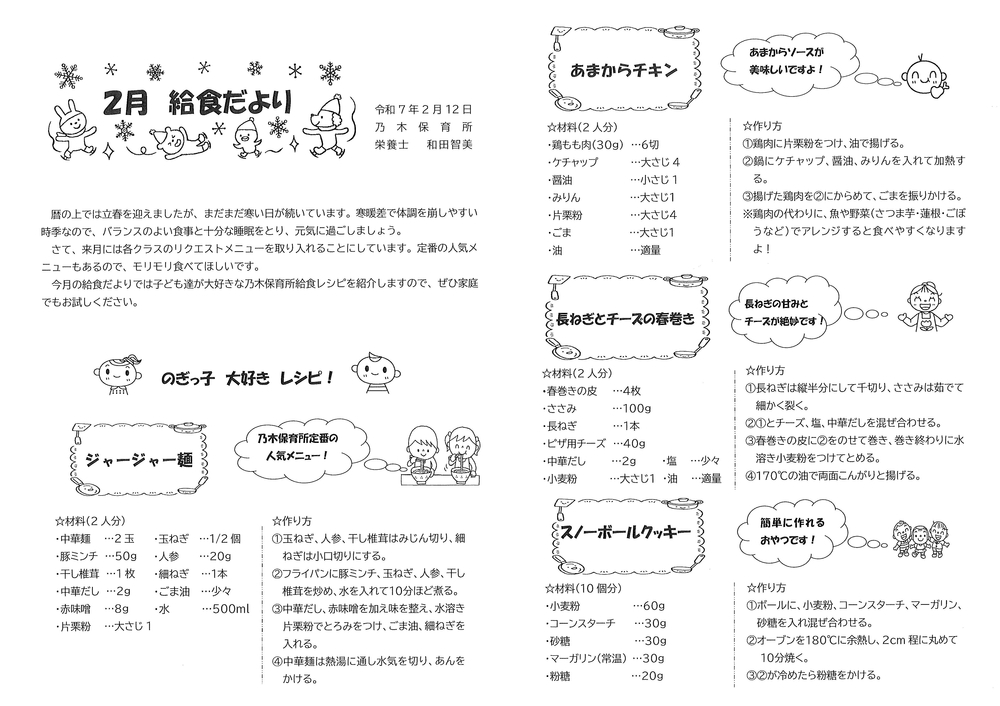 2月 給食だより
令和7年2月12日
乃木保育所
栄養士 和田智美
暦の上では立春を迎えましたが、まだまだ寒い日が続いています。寒暖差で体調を崩しやすい
時季なので、バランスのよい食事と十分な睡眠をとり、元気に過ごしましょう。
さて、来月には各クラスのリクエストメニューを取り入れることにしています。定番の人気メ
ニューもあるので、モリモリ食べてほしいです。
今月の給食だよりでは子ども達が大好きな乃木保育所給食レシピを紹介しますので、ぜひ家庭
でもお試しください。
のぎっ子 大好き レシピ！
ジャージャー麺
乃木保育所定番の
人気メニュー！
☆材料(2人分)
・中華麺 …2玉 ・玉ねぎ …1/2個
・豚ミンチ …50g ・人参 …20g
・干し椎茸 …1枚 ・細ねぎ …1本
・中華だし …2g ・ごま油 …少々
・赤味噌 …8g ・水 …500ml
・片栗粉 …大さじ1
☆作り方
①玉ねぎ、人参、干し椎茸はみじん切り、細
ねぎは小口切りにする。
②フライパンに豚ミンチ、玉ねぎ、人参、干し
椎茸を炒め、水を入れて10分ほど煮る。
③中華だし、赤味噌を加え味を整え、水溶き
片栗粉でとろみをつけ、ごま油、細ねぎを
入れる。
④中華麺は熱湯に通し水気を切り、あんを
かける。
あまからチキン
あまからソースが
美味しいですよ！
☆材料(2人分)
・鶏もも肉(30g) …6切
・ケチャップ …大さじ4
・醤油 …小さじ1
・みりん …大さじ1
・片栗粉 …大さじ4
・ごま …大さじ1
・油 …適量
☆作り方
①鶏肉に片栗粉をつけ、油で揚げる。
②鍋にケチャップ、醤油、みりんを入れて加熱す
る。
③揚げた鶏肉を②にからめて、ごまを振りかける。
※鶏肉の代わりに、魚や野菜(さつま芋・蓮根・ごぼ
うなど)でアレンジすると食べやすくなります
よ！
長ねぎとチーズの春巻き
長ねぎの甘みと
チーズが絶妙です！
☆材料(2人分)
・春巻きの皮 …4枚
・ささみ …100g
・長ねぎ …1本
・ピザ用チーズ …40g
・中華だし …2g ・塩 …少々
・小麦粉 …大さじ1 ・油 …適量
☆作り方
①長ねぎは縦半分にして千切り、ささみは茹でて
細かく裂く。
②①とチーズ、塩、中華だしを混ぜ合わせる。
③春巻きの皮に②をのせて巻き、巻き終わりに水
溶き小麦粉をつけてとめる。
④170℃の油で両面こんがりと揚げる。
スノーボールクッキー
簡単に作れる
おやつです！
☆材料(10個分)
・小麦粉 …60g
・コーンスターチ …30g
・砂糖 …30g
・マーガリン(常温) …30g
・粉糖 …20g
☆作り方
①ボールに、小麦粉、コーンスターチ、マーガリン、
砂糖を入れ混ぜ合わせる。
②オーブンを180℃に余熱し、2cm程に丸めて
10分焼く。
③②が冷めたら粉糖をかける。